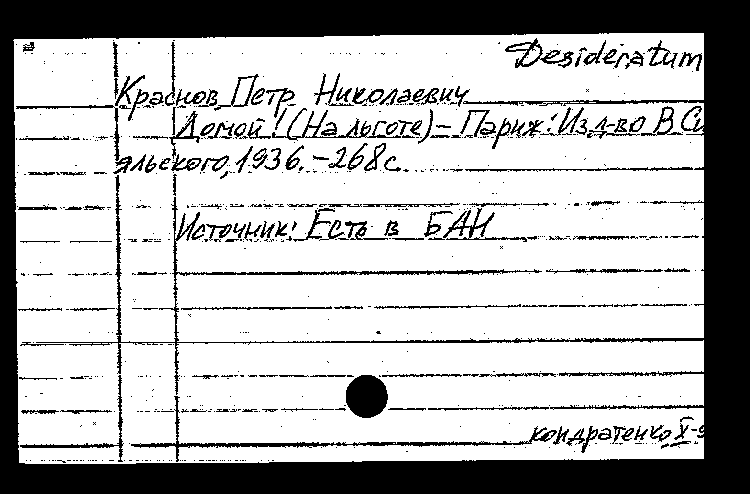 Desideratum
Краснов Петр Николаевич
Домой! (На льготе) – Париж: Изд-во В. Си
яльского, 1936. – 268с.
Источник: Есть в БАН
кондратенко X-9